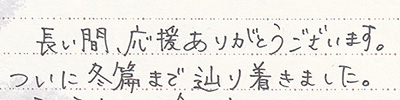 長い間、応援ありがとうございます。
ついに冬篇まで辿り着きました。